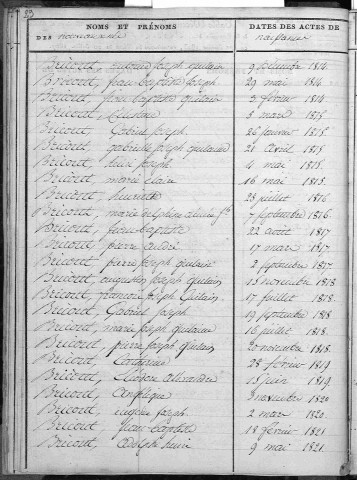 23
NOMS ET PRÉNOMS
DES nouveaux nés
DATES DES ACTES DE
naissance
Bricout, antoine joseph ghislain 9 décembre 1814.
Bricout, jean baptiste joseph 29 mai 1814.
Bricout, jean baptiste ghislain 3 février 1814
Bricout, 5 mars 1815
Bricout, Gabriel joseph 26 janvier 1815.
Bricout, gabrielle joseph ghislaine 21 avril 1815.
Bricout, henri joseph 4 mai 1815.
Bricout, marie claire 16 mai 1815.
Bricout, henriette 28 juillet 1816
Bricout, marie delphine 7 septembre 1816.
Bricout, jean baptiste 22 août 1817
Bricout, pierre andré 17 mars 1817.
Bricout, pierre joseph ghislain 2 septembre 1817.
Bricout, augustin joseph ghislain 15 novembre 1818
Bricout, françois joseph Ghislain 17 juillet 1818.
Bricout, Gabriel joseph 19 septembre 1818
Bricout, marie joseph ghislaine 16 juillet 1818.
Bricout, pierre joseph ghislain 20 novembre 1818.
Bricout, Catherine 28 février 1819
Bricout, alexandre 15 juin 1819.
Bricout, Angélique 3 novembre 1820
Bricout, eugène joseph 2 mars 1820.
Bricout, jean baptiste 18 février 1821
Bricout, adolphe henri 9 mai 1821.